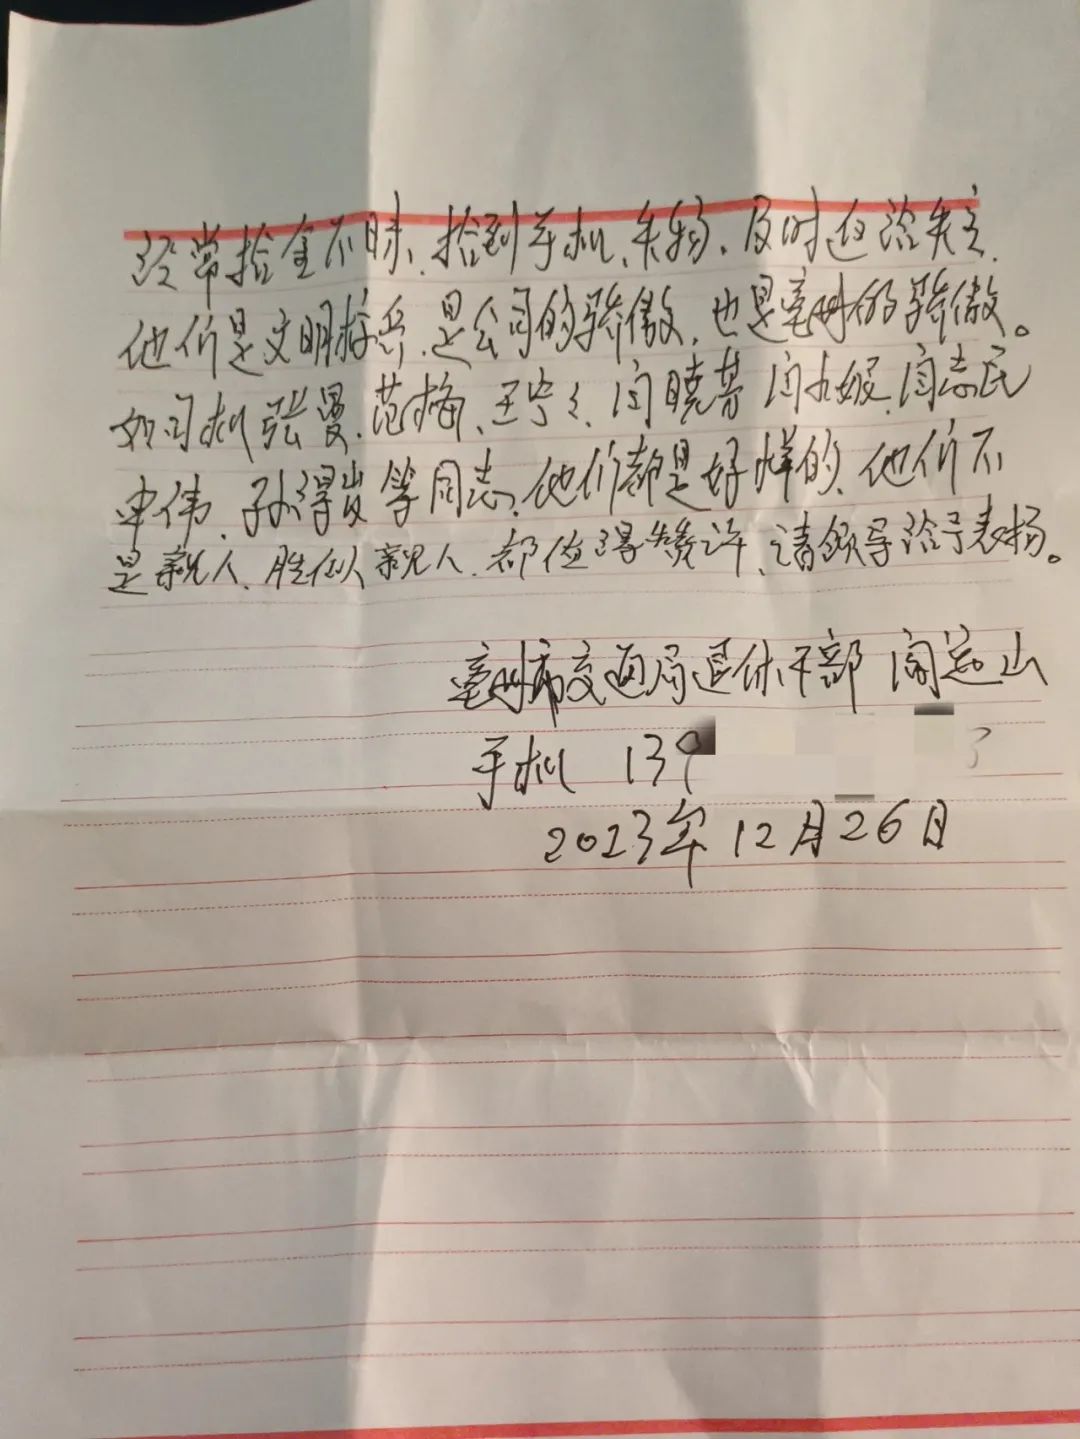 经常拾金不昧、拾到手机、失物、及时还给失主、
他们是文明标兵、是公司的骄傲、也是亳州的骄傲。
如司机张曼、范梅、王宁、闫晓 闫九 、闫志民
申伟、孙得 等同志、他们都是好样的、他们不
是亲人、胜似亲人、都值得赞许、请领导给予表扬。
亳州市交通局退休干部 闫 山
手机 139 3
2023年12月26日